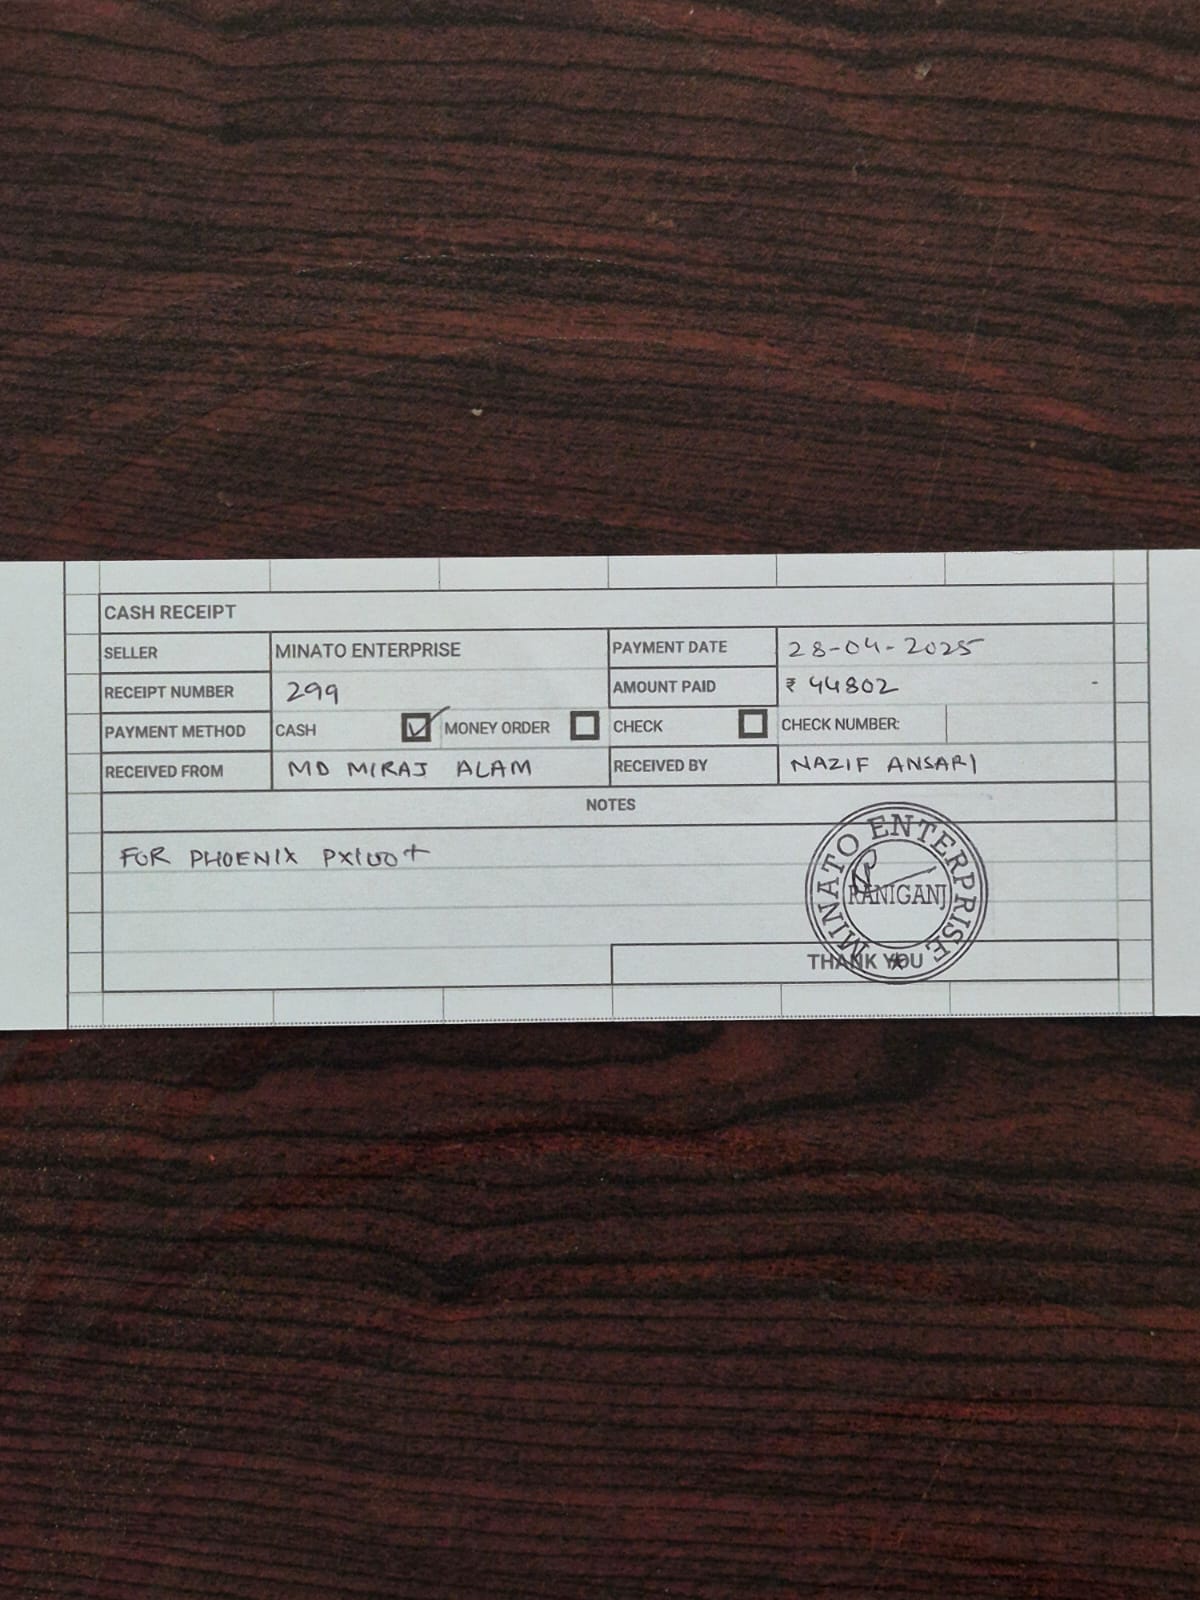 CASH RECEIPT
SELLER MINATO ENTERPRISE PAYMENT DATE 28-04-2025
RECEIPT NUMBER 299 AMOUNT PAID ₹ 44802
PAYMENT METHOD CASH MONEY ORDER CHECK CHECK NUMBER:
RECEIVED FROM MD MIRAJ ALAM RECEIVED BY NAZIF ANSARI
NOTES
FOR PHOENIX PX100+
MINATO ENTERPRISE
RANIGANJ
THANK YOU